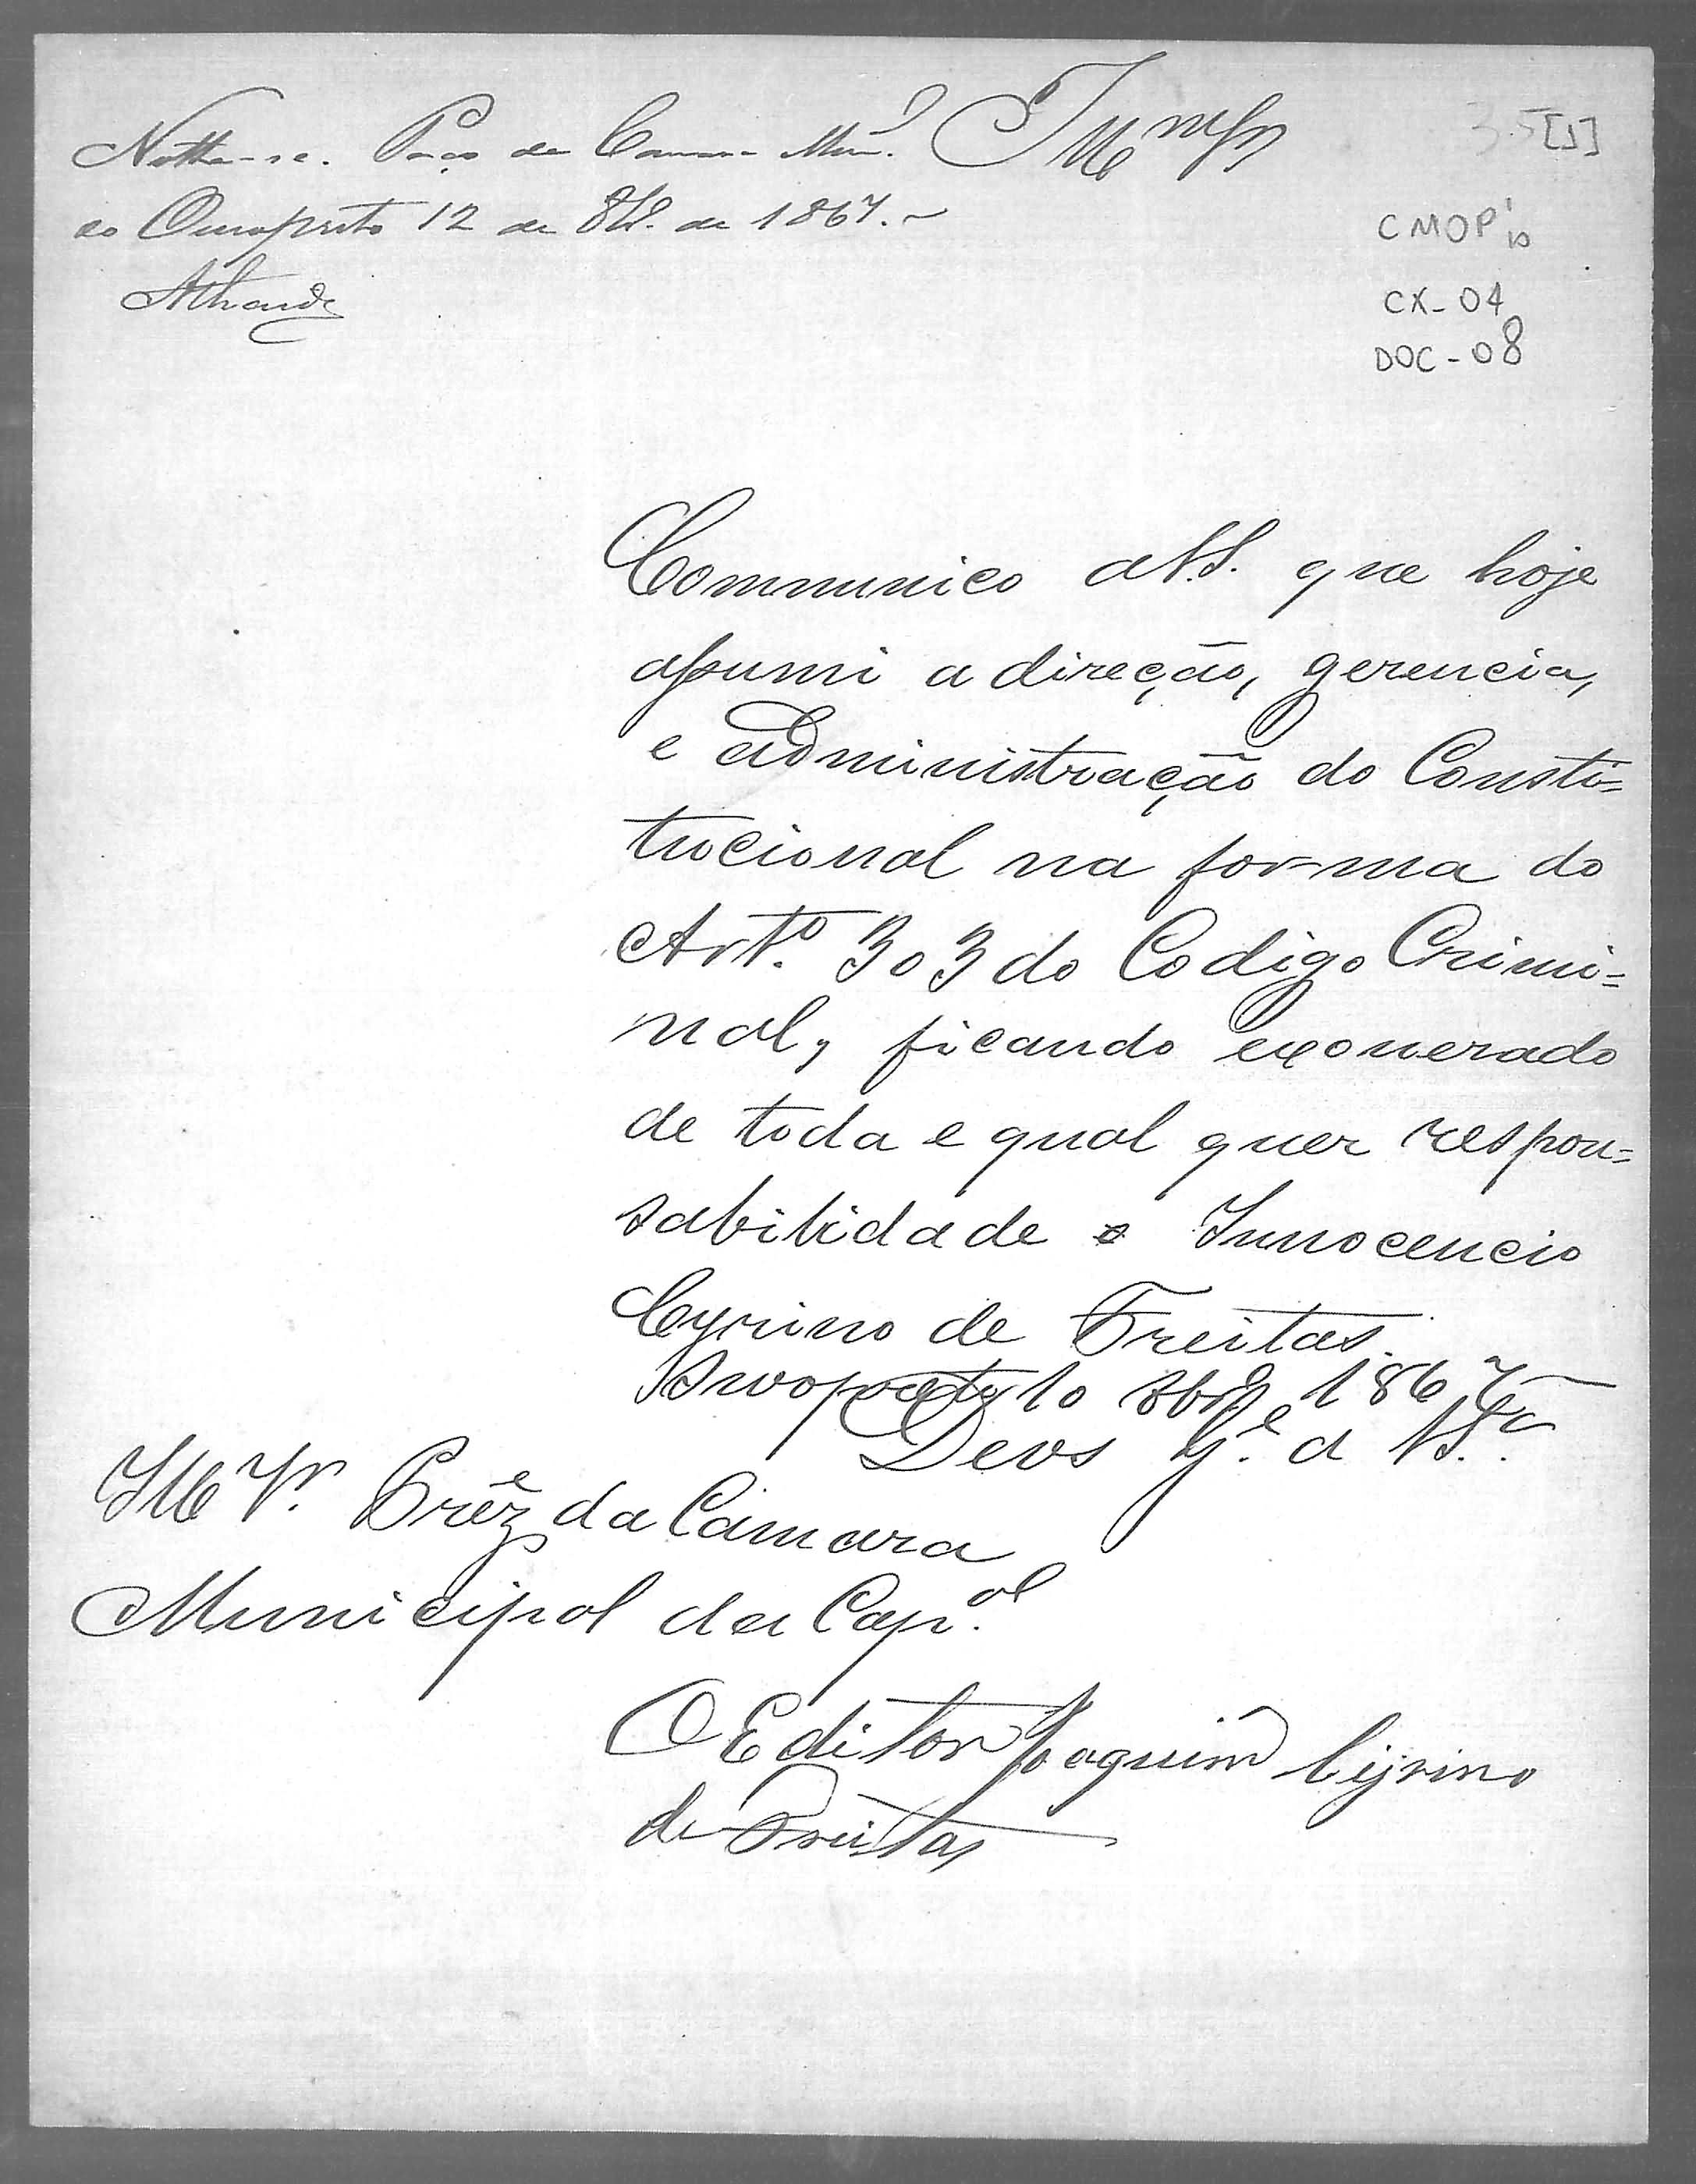 Notte-se. Paço da Camara Mun.al
do Ouropreto 12 de 8br.o de 1867.
Illmo Snr
[1]
CMOP
CX-04
DOC-08
Communico a V.S. que hoje
assumi a direção, gerencia,
e administração do Consti=
tucional na forma do
Art.o 303 do Codigo Crimi=
nal, ficando exonerado
de toda e qual quer respon=
sabilidade o Innocencio
Cyrino de Freitas.
Ouropreto 10 8br.o 1867
Deos G.e a V.S.a
Ill Sr. Prêz.e da Câmara
Municipal da Cap.al
O Editor Joaquim Cyrino
de Freitas